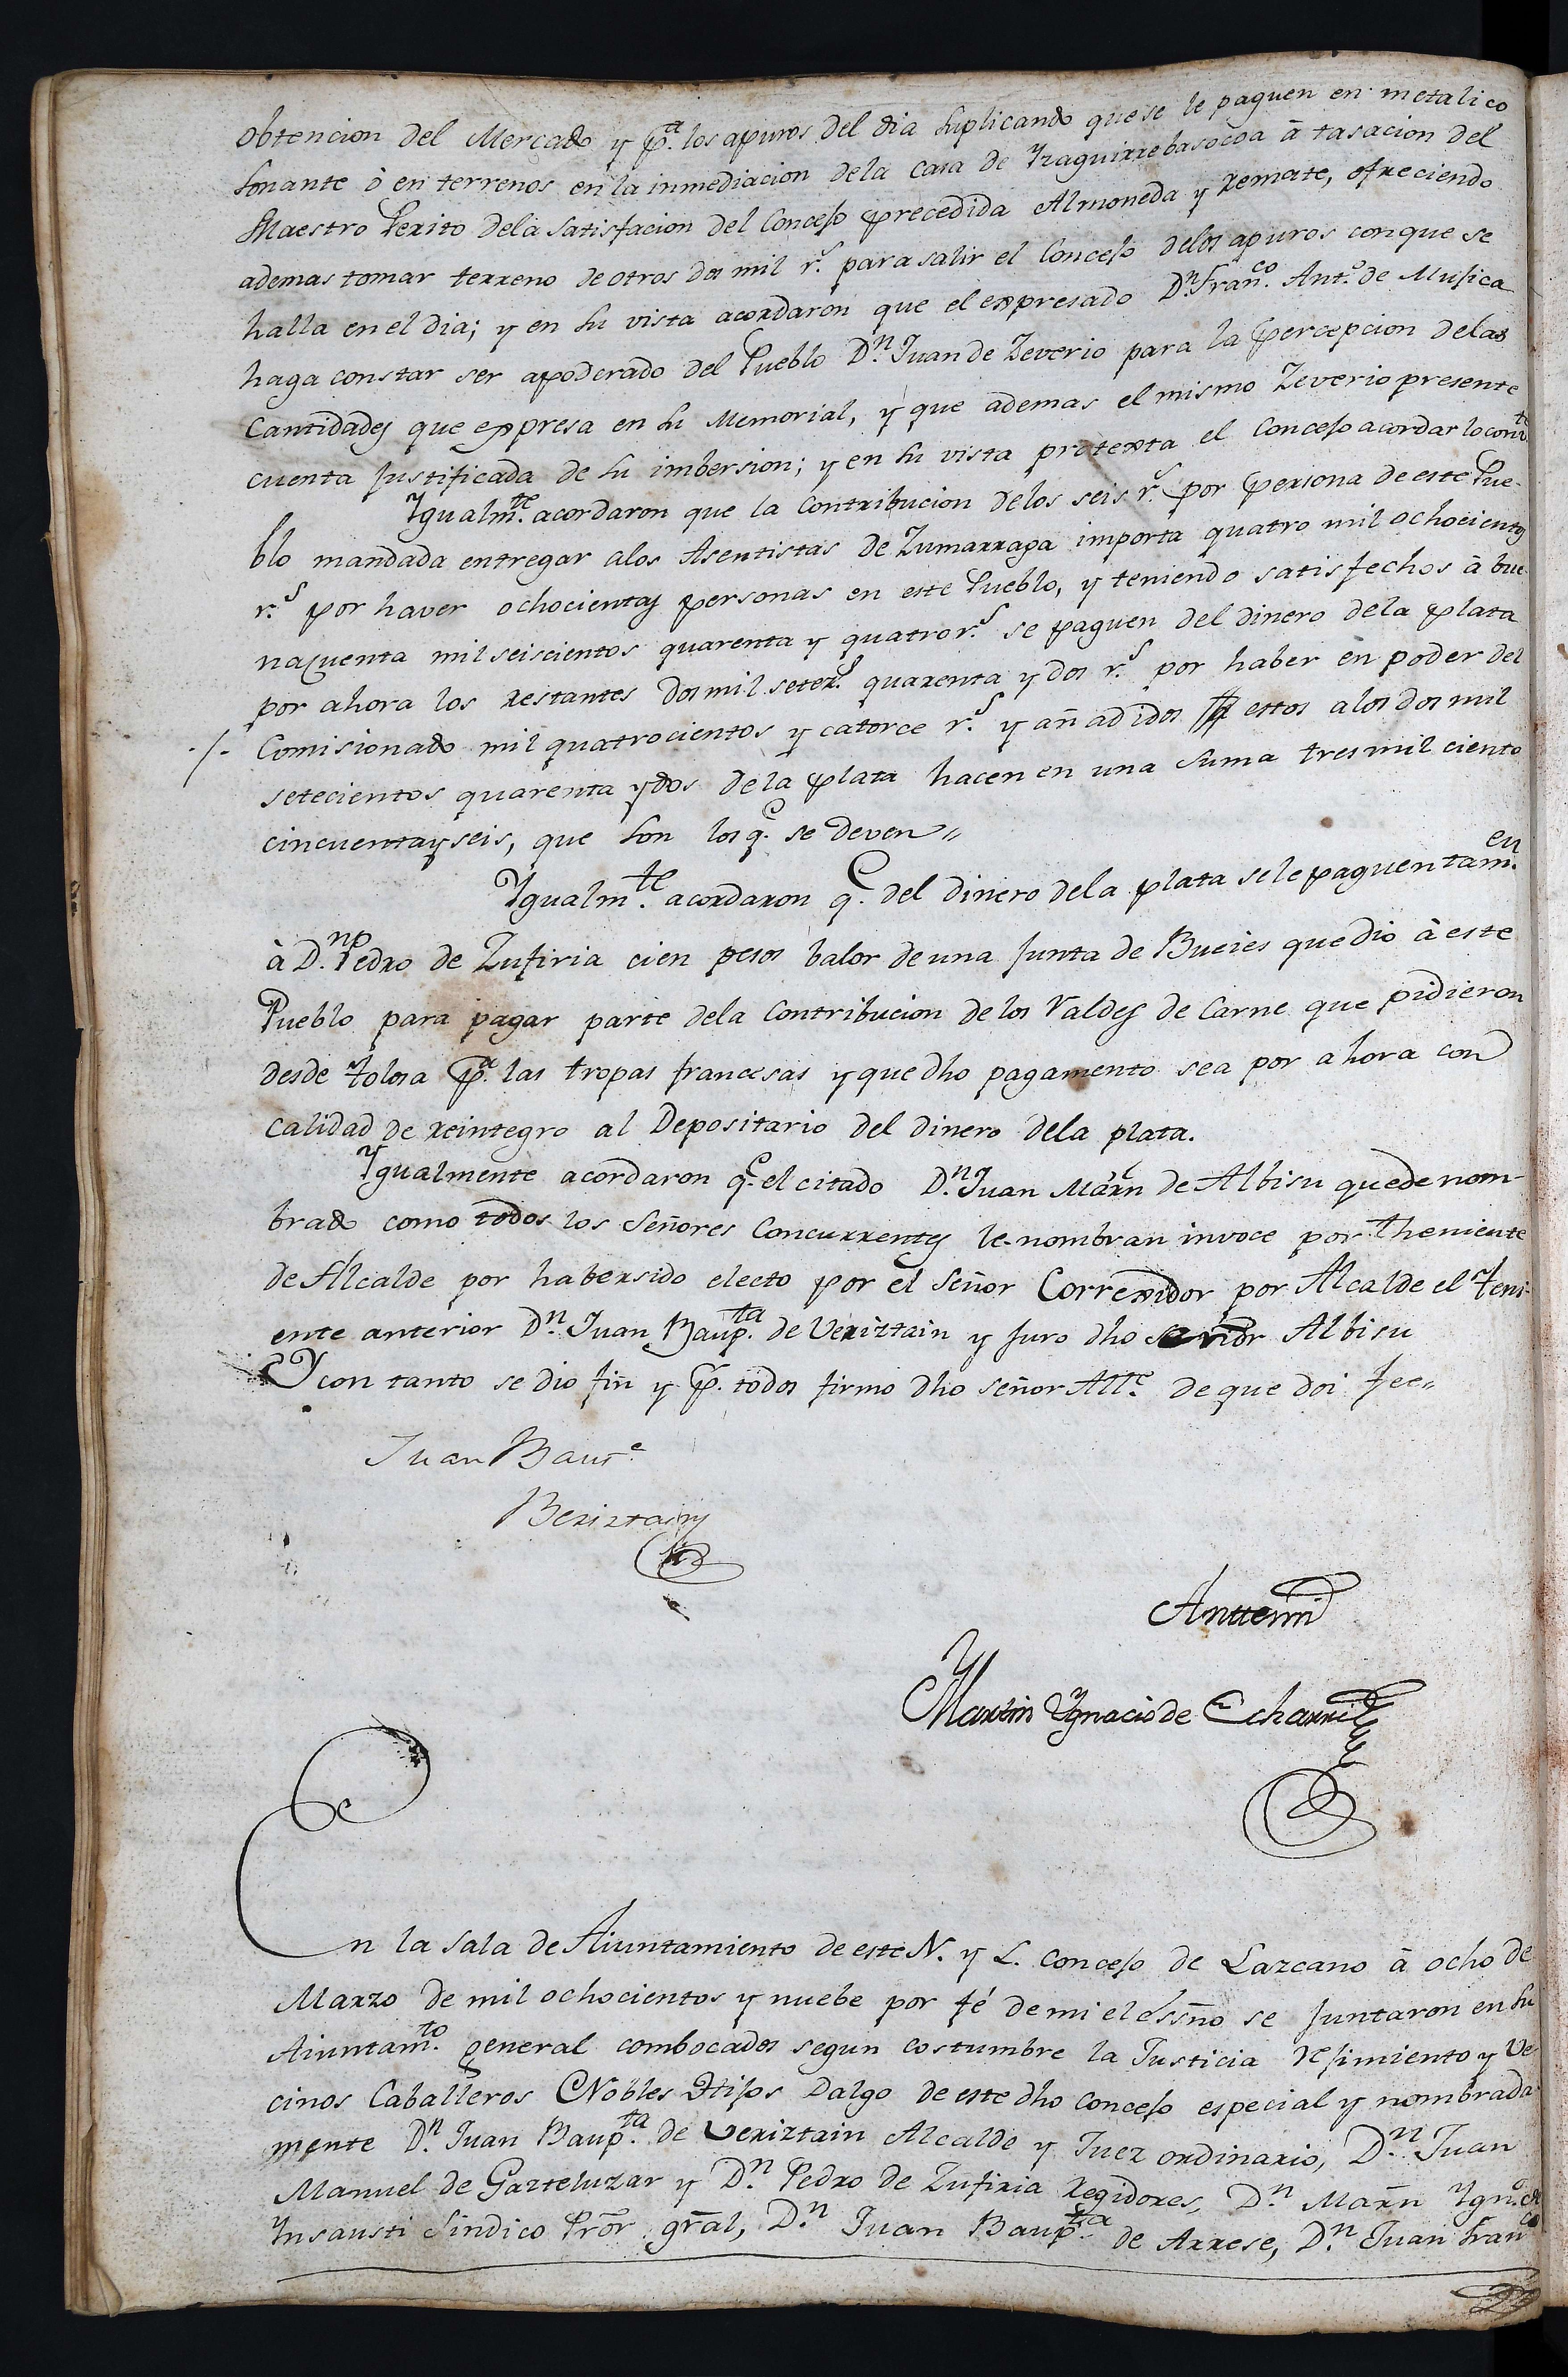 obtencion del Mercado y p.ª los apuros del dia suplicando que se le paguen en metalico
sonante ò en terrenos en la inmediacion dela casa de Yraguirrebasocoa â tasacion del
Maestro Perito dela satisfacion del Concejo precedida Almoneda y remate, ofreciendo
ademas tomar terreno de otros dos mil r.s para salir el Concejo delos apuros con que se
halla en el dia; y en su vista acordaron que el expresado D.n Fran.co Ant.o de Musica
haga constar ser apoderado del Pueblo D.n Juan de Zeverio para la percepcion delas
Cantidades que expresa en su Memorial, y que ademas el mismo Zeverio presente
cuenta justificada de su imbersion; y en su vista protexta el Concejo acordar lo conv.te
Ygualm.te acordaron que la Contribucion delos seis r.s por persona de este Pue-
blo mandada entregar alos Asentistas de Zumarraga importa quatro mil ochocientos
r.s por haver ochocientas personas en este Pueblo, y teniendo satisfechos â bue-
na cuenta mil seiscientos quarenta y quatro r.s se paguen del dinero dela plata
por ahora los restantes dos mil seter.s quarenta y dos r.s por haber en poder del
./. Comisionado mil quatrocientos y catorce r.s y añadidos estos alos dos mil
setecientos quarenta y dos dela plata hacen en una suma tres mil ciento
cincuenta y seis, que son los q.e se deven"
Ygualm.te acordaron q.e del dinero dela plata sele paguen tam.en
à D.n Pedro de Zufiria cien pesos balor de una junta de Bueies que dio à este
Pueblo para pagar parte dela Contribucion de los Valdes de Carne que pidieron
desde tolosa p.ª las tropas francesas y que dho pagamento sea por ahora con
calidad de reintegro al Depositario del dinero dela plata.
Ygualmente acordaron q.e el citado D.n Juan Märn de Albisu quede nom-
brado como todos los Señores Concurrentes le nombran invoce por theniente
de Alcalde por haber sido electo por el Señor Correxidor por Alcalde el teni-
ente anterior D.n Juan Baup.ta de Veriztain y juro dho señor Albisu
Y con tanto se dio fin y p.r todos firmo dho señor All.e de que doi fee"
Juan Baut.e
Beriztain
Anttemi
Martin Ygnacio de Echarri
En la sala de Aiuntamiento de este N. y L. Concejo de Lazcano â ocho de
Marzo de mil ochocientos y nuebe por fé de mi el Essño se juntaron en su
Aiuntam.to general combocados segun costumbre la Justicia rejimiento y Ve
cinos Caballeros Nobles Hijos Dalgo de este dho Concejo especial y nombrada-
mente D.n Juan Baup.ta de Veriztain Alcalde y Juez ordinario, D.n Juan
Manuel de Garteluzar y D.n Pedro de Zufiria Regidores, D.n Marñ Ygn.o de
Ynsausti Sindico Prōr grāl, D.n Juan Baup.ta de Arrese, D.n Juan Fran.co